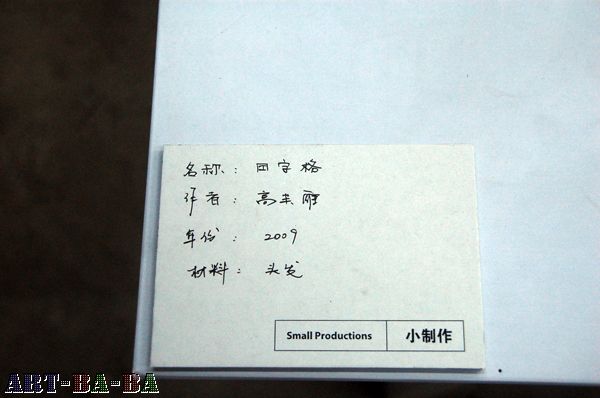 名称：田字格
作者：高丰雁
年份：2009
材料：头发
Small Productions 小制作
ART-BA-BA